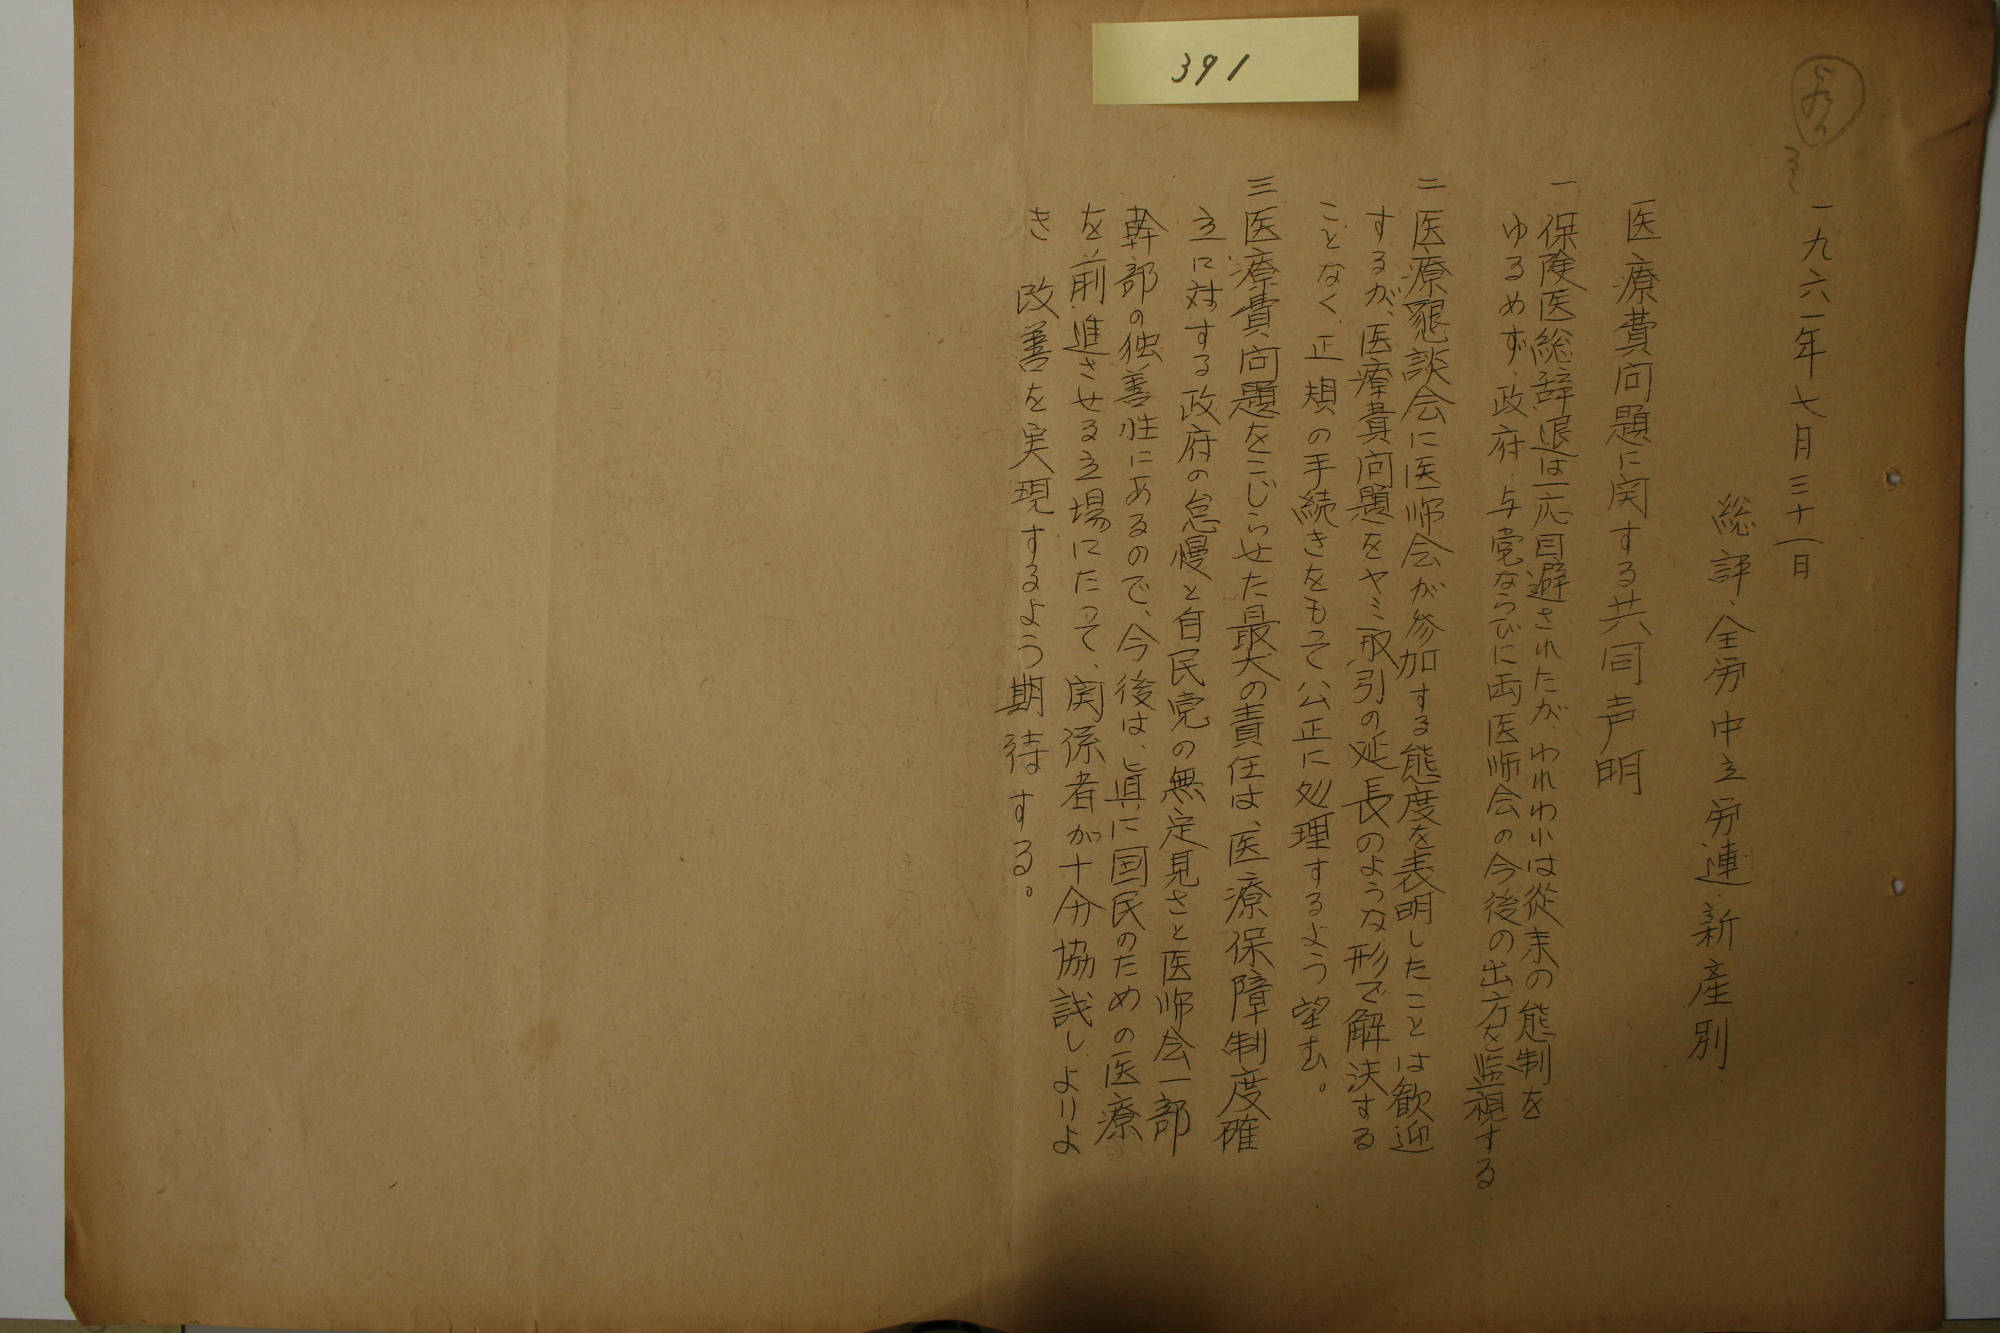 391
一九六一年七月三十一日
総評・全労・中立労連・新産別
医療費问題に関する共同声明
一、保険医総辞退は一応回避されたが、われわれは従来の態制を
ゆるめず、政府・与党ならびに両医師会の今後の出方を監視する
二、医療懇談会に医師会が参加する態度を表明したことは歓迎
するが、医療費问題をヤミ取引の延長のような形で解決する
ことなく、正規の手続きをもって公正に処理するよう望む。
三、医療費问題をこじらせた最大の責任は、医療保障制度確
立に対する政府の怠慢と自民党の無定見さと医師会一部
幹部の独善性にあるので、今後は、真に国民のための医療
を前進させる立場にたって、関係者が十分協議しよりよ
き改善を実現するよう期待する。